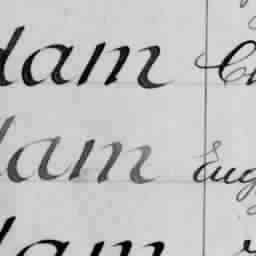 dam
dam Eug
dam